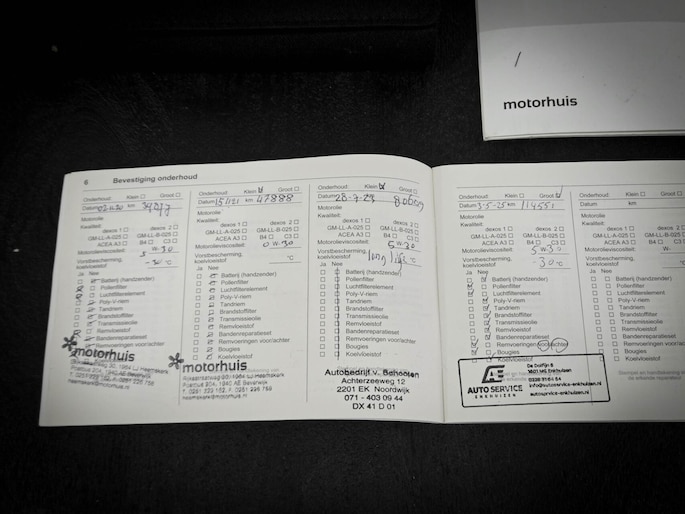 motorhuis
6 Bevestiging onderhoud
Onderhoud: Klein Groot
Datum km
Motorolie
Kwaliteit:
dexos 1 dexos 2
GM-LL-A-025 GM-LL-B-025
ACEA A3 B4 C3
Motorolieviscositeit:
Vorstbescherming,
koelvloeistof
Ja Nee
Batterij (handzender)
Pollenfilter
Luchtfilterelement
Poly-V-riem
Tandriem
Brandstoffilter
Transmissieolie
Remvloeistof
Bandenreparatieset
Remvoeringen voor/achter
motorhuis
Onderhoud: Klein Groot
Datum 15/1/21 km 47888
Motorolie
Kwaliteit:
dexos 1 dexos 2
GM-LL-A-025 GM-LL-B-025
ACEA A3 B4 C3
Motorolieviscositeit:
0 W-30
Vorstbescherming, °C
koelvloeistof
Ja Nee
Batterij (handzender)
Pollenfilter
Luchtfilterelement
Poly-V-riem
Tandriem
Brandstoffilter
Transmissieolie
Remvloeistof
Bandenreparatieset
Remvoeringen voor/achter
Bougies
Koelvloeistof
motorhuis
Onderhoud: Klein Groot
Datum
Motorolie
Kwaliteit:
dexos 1 dexos 2
GM-LL-A-025 GM-LL-B-025
ACEA A3 B4 C3
Motorolieviscositeit:
5 W-30
Vorstbescherming, long life °C
koelvloeistof
Ja Nee
Batterij (handzender)
Pollenfilter
Luchtfilterelement
Poly-V-riem
Tandriem
Brandstoffilter
Transmissieolie
Remvloeistof
Bandenreparatieset
Remvoeringen voor/achter
Bougies
Koelvloeistof
Autobedrijf v. Behooten
Achterzeeweg 12
2201 EK Noordwijk
071 - 403 09 44
DX 41 D 01
Onderhoud: Klein Groot
Datum 3-5-25 km 114551
Motorolie
Kwaliteit:
dexos 1 dexos 2
GM-LL-A-025 GM-LL-B-025
ACEA A3 B4 C3
Motorolieviscositeit:
5 W-30
Vorstbescherming,
koelvloeistof -30 °C
Ja Nee
Batterij (handzender)
Pollenfilter
Luchtfilterelement
Poly-V-riem
Tandriem
Brandstoffilter
Transmissieolie
Remvloeistof
Bandenreparatieset
Remvoeringen voor/achter
Bougies
Koelvloeistof
AUTO SERVICE
ENKHUIZEN
info@autoservice-enkhuizen.nl
autoservice-enkhuizen.nl
Onderhoud: Klein Groot
Datum km
Motorolie
Kwaliteit:
dexos 1 dexos 2
GM-LL-A-025 GM-LL-B-025
ACEA A3 B4 C3
Motorolieviscositeit:
W-
Vorstbescherming,
koelvloeistof
Ja Nee
Batterij (handzender)
Pollenfilter
Luchtfilterelement
Poly-V-riem
Tandriem
Brandstoffilter
Transmissieolie
Remvloeistof
Bandenreparatieset
Remvoeringen voor/achter
Bougies
Koelvloeistof